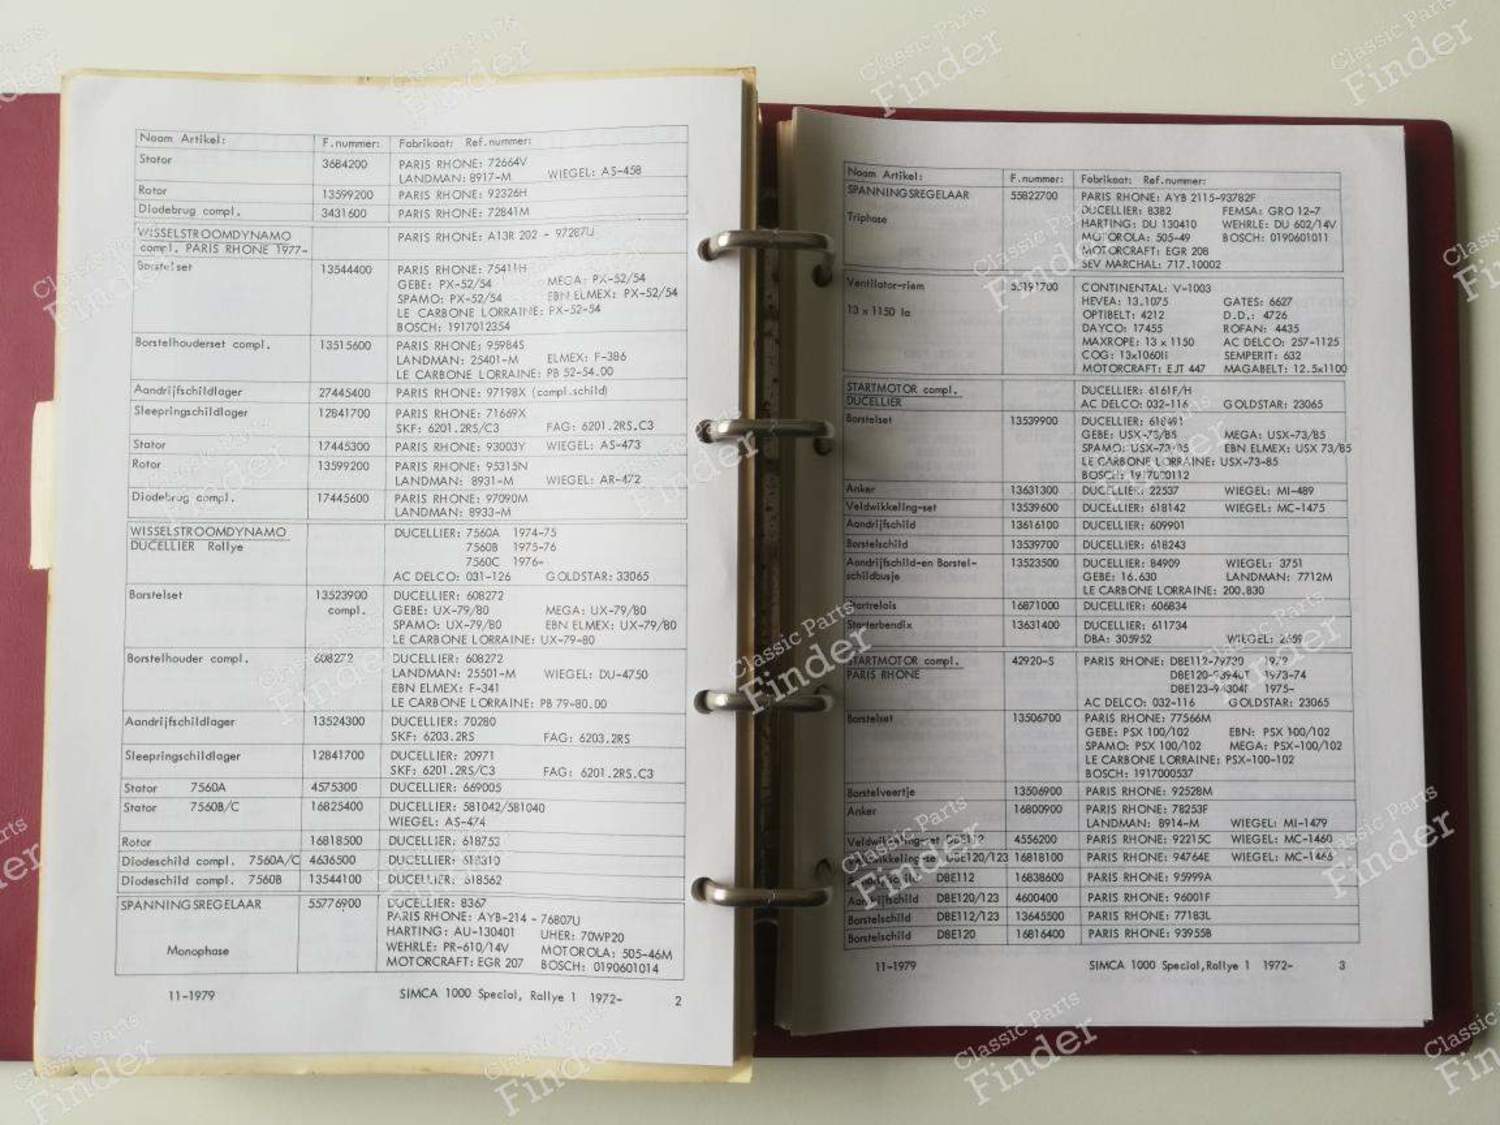 Naam Artikel: F.nummer: Fabrikaat: Ref.nummer:
Stator 3684200 PARIS RHONE: 72664V
LANDMAN: 8917-M WIEGEL: AS-458
Rotor 13599200 PARIS RHONE: 92326H
Diodebrug compl. 3431600 PARIS RHONE: 72841M
WISSELSTROOMDYNAMO PARIS RHONE: A13R 202 - 97287U
compl. PARIS RHONE 1977-
Borstelset 13544400 PARIS RHONE: 75411H
GEBE: PX-52/54 MEGA: PX-52/54
SPAMO: PX-52/54 EBN ELMEX: PX-52/54
LE CARBONE LORRAINE: PX-52-54
BOSCH: 1917012354
Borstelhouderset compl. 13515600 PARIS RHONE: 95984S
LANDMAN: 25401-M ELMEX: F-386
LE CARBONE LORRAINE: PB 52-54.00
Aandrijfschildlager 27445400 PARIS RHONE: 97198X (compl.schild)
Sleepringschildlager 12841700 PARIS RHONE: 71669X
SKF: 6201.2RS/C3 FAG: 6201.2RS.C3
Stator 17445300 PARIS RHONE: 93003Y WIEGEL: AS-473
Rotor 13599200 PARIS RHONE: 95315N
LANDMAN: 8931-M WIEGEL: AR-472
Diodebrug compl. 17445600 PARIS RHONE: 97090M
LANDMAN: 8933-M
WISSELSTROOMDYNAMO DUCELLIER: 7560A 1974-75
DUCELLIER Rallye 7560B 1975-76
7560C 1976-
AC DELCO: 031-126 GOLDSTAR: 33065
Borstelset 13523900 DUCELLIER: 608272
compl. GEBE: UX-79/80 MEGA: UX-79/80
SPAMO: UX-79/80 EBN ELMEX: UX-79/80
LE CARBONE LORRAINE: UX-79-80
Borstelhouder compl. 608272 DUCELLIER: 608272
LANDMAN: 25501-M WIEGEL: DU-4750
EBN ELMEX: F-341
LE CARBONE LORRAINE: PB 79-80.00
Aandrijfschildlager 13524300 DUCELLIER: 70280
SKF: 6203.2RS FAG: 6203.2RS
Sleepringschildlager 12841700 DUCELLIER: 20971
SKF: 6201.2RS/C3 FAG: 6201.2RS.C3
Stator 7560A 4575300 DUCELLIER: 669005
Stator 7560B/C 16825400 DUCELLIER: 581042/581040
WIEGEL: AS-474
Rotor 16818500 DUCELLIER: 618753
Diodeschild compl. 7560A/C 4636500 DUCELLIER: 618310
Diodeschild compl. 7560B 13544100 DUCELLIER: 618562
SPANNINGSREGELAAR 55776900 DUCELLIER: 8367
PARIS RHONE: AYB-214 - 76807U
HARTING: AU-130401 UHER: 70WP20
Monophase WEHRLE: PR-610/14V MOTOROLA: 505-46M
MOTORCRAFT: EGR 207 BOSCH: 0190601014
11-1979 SIMCA 1000 Special, Rallye 1 1972- 2
Naam Artikel: F.nummer: Fabrikaat: Ref.nummer:
SPANNINGSREGELAAR 55822700 PARIS RHONE: AYB 2115-93782F
DUCELLIER: 8382 FEMSA: GRO 12-7
Triphase HARTING: DU 130410 WEHRLE: DU 602/14V
MOTOROLA: 505-49 BOSCH: 0190601011
MOTORCRAFT: EGR 208
SEV MARCHAL: 717.10002
Ventilator-riem 55191700 CONTINENTAL: V-1003
HEVEA: 13.1075 GATES: 6627
13 x 1150 la OPTIBELT: 4212 D.D.: 4726
DAYCO: 17455 ROFAN: 4435
MAXROPE: 13 x 1150 AC DELCO: 257-1125
COG: 13x1060li SEMPERIT: 632
MOTORCRAFT: EJT 447 MAGABELT: 12.5x1100
STARTMOTOR compl. DUCELLIER: 6161F/H
DUCELLIER AC DELCO: 032-116 GOLDSTAR: 23065
Borstelset 13539900 DUCELLIER: 618491
GEBE: USX-73/85 MEGA: USX-73/85
SPAMO: USX-73/85 EBN ELMEX: USX 73/85
LE CARBONE LORRAINE: USX-73-85
BOSCH: 1917000112
Anker 13631300 DUCELLIER: 22537 WIEGEL: MI-489
Veldwikkeling-set 13539600 DUCELLIER: 618142 WIEGEL: MC-1475
Aandrijfschild 13616100 DUCELLIER: 609901
Borstelschild 13539700 DUCELLIER: 618243
Aandrijfschild-en Borstel- 13523500 DUCELLIER: 84909 WIEGEL: 3751
schildbusje GEBE: 16.630 LANDMAN: 7712M
LE CARBONE LORRAINE: 200.830
Startrelais 16871000 DUCELLIER: 606834
Starterbendix 13631400 DUCELLIER: 611734
DBA: 305952 WIEGEL: 2659
STARTMOTOR compl. 42920-S PARIS RHONE: DBE112-79720
PARIS RHONE 1973-74
1975-
AC DELCO: 032-116 GOLDSTAR: 23065
Borstelset 13506700 PARIS RHONE: 77566M
GEBE: PSX 100/102 EBN: PSX 100/102
SPAMO: PSX 100/102 MEGA: PSX-100/102
LE CARBONE LORRAINE: PSX-100-102
BOSCH: 1917000537
Borstelveertje 13506900 PARIS RHONE: 92528M
Anker 16800900 PARIS RHONE: 78253F
LANDMAN: 8914-M WIEGEL: MI-1479
Veldwikkeling-set DBE112 4556200 PARIS RHONE: 92215C WIEGEL: MC-1460
Veldwikkeling-set DBE120/123 16818100 PARIS RHONE: 94764E WIEGEL: MC-1466
Aandrijfschild DBE112 16838600 PARIS RHONE: 95999A
Aandrijfschild DBE120/123 4600400 PARIS RHONE: 96001F
Borstelschild DBE112/123 13645500 PARIS RHONE: 77183L
Borstelschild DBE120 16816400 PARIS RHONE: 93955B
11-1979 SIMCA 1000 Special,Rallye 1 1972- 3
Classic Parts
Finder